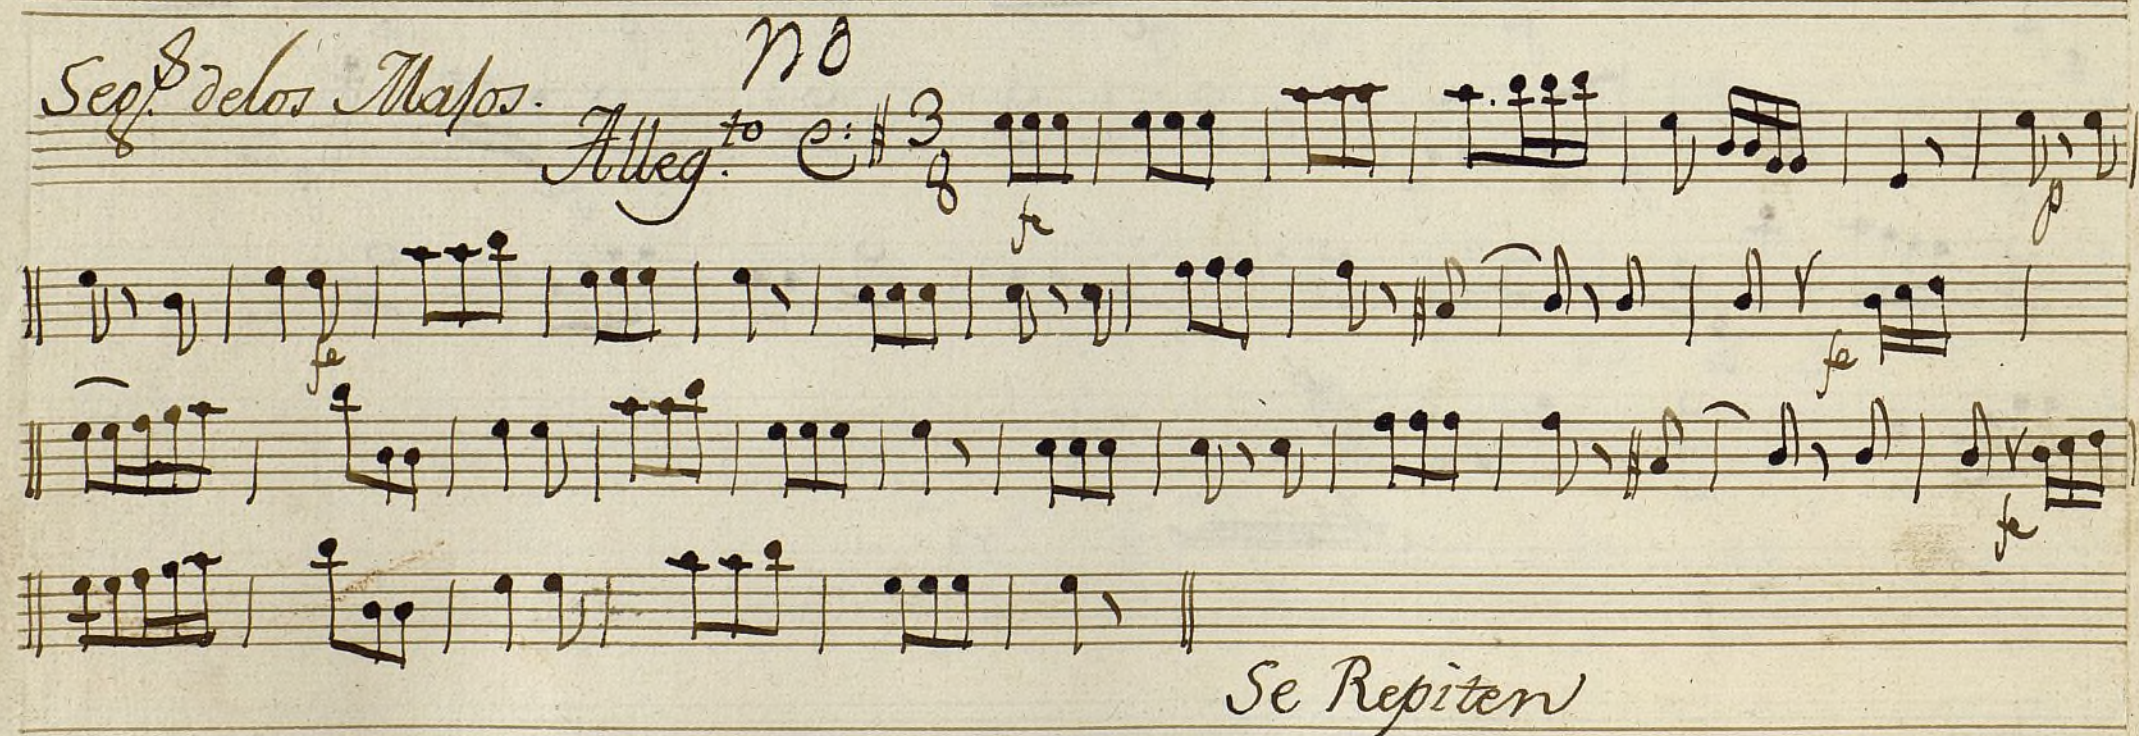 no
Seg.s de los Majos.
Alleg.to 3 8
fe p
fe fe
fe
Se Repiten